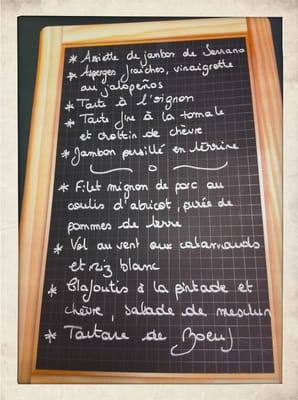 * Assiette de jambon de Serrano
* Asperges fraîches, vinaigrette
au jalapeños
* Tarte à l'oignon
* Tarte fine à la tomate
et crottin de chèvre
* Jambon persillé en terrine
* Filet mignon de porc au
coulis d'abricot, purée de
pommes de terre
* Vol au vent aux calamards
et riz blanc
* Clafoutis à la pintade et
chèvre, salade de mesclun
* Tartare de Boeuf